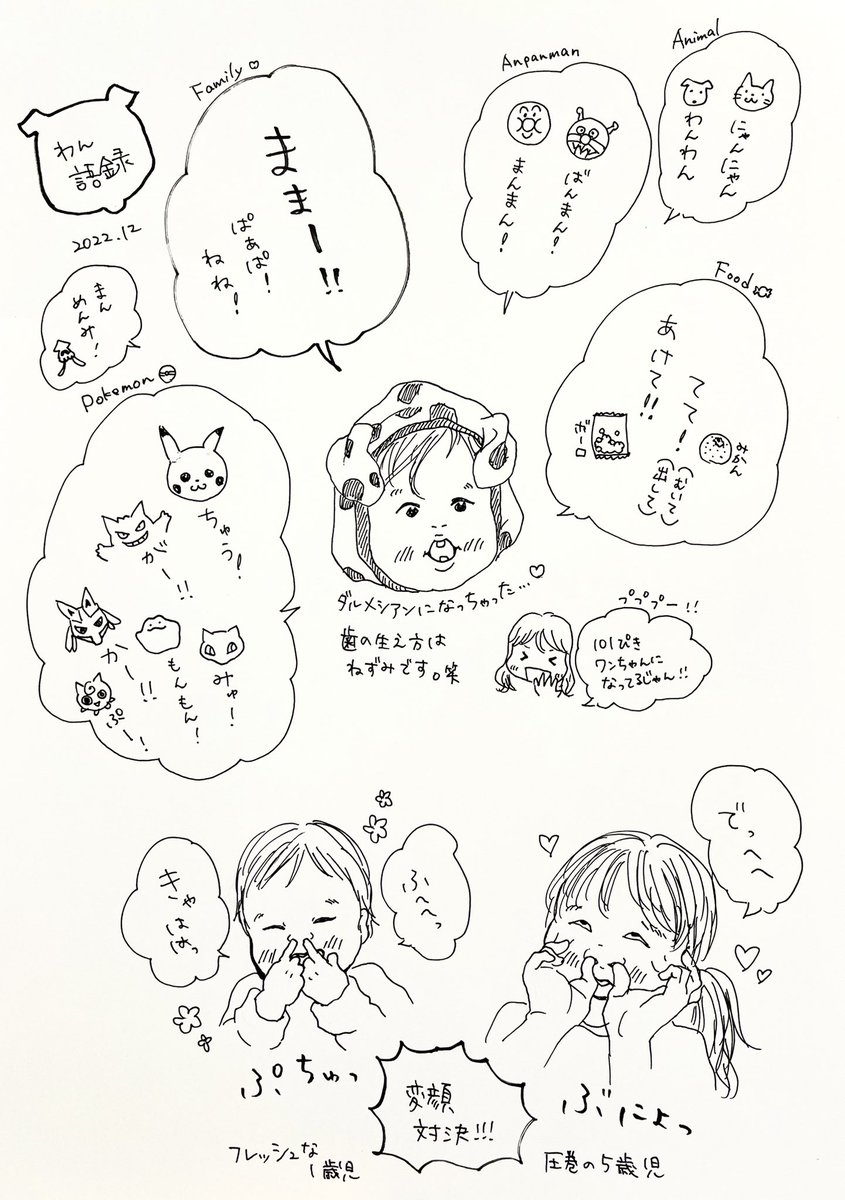 わん
語録
2022.12
Family
ままー!!
ぱぁぱ!
ねね!
Anpanman
ばんまん!
まんまん!
Animal
にゃんにゃん
わんわん
まん
めんみ!
Food
みかん
てて!
(むいて)
(出して)
あけて!!
ボーロ
Pokemon
ちゅう!
がー!!
みゅー!
もんもん!
かー!!
ぷー!!
ダルメシアンになっちゃった…
歯の生え方は
ねずみです。笑
プププー!!
101ぴき
ワンちゃんに
なってるじゃん!!
きゃはは
はっ
ふへへっ
でっへへ
ぷちゅっ
変顔
対決!!!
ぶにょっ
フレッシュな
1歳児
圧巻の5歳児